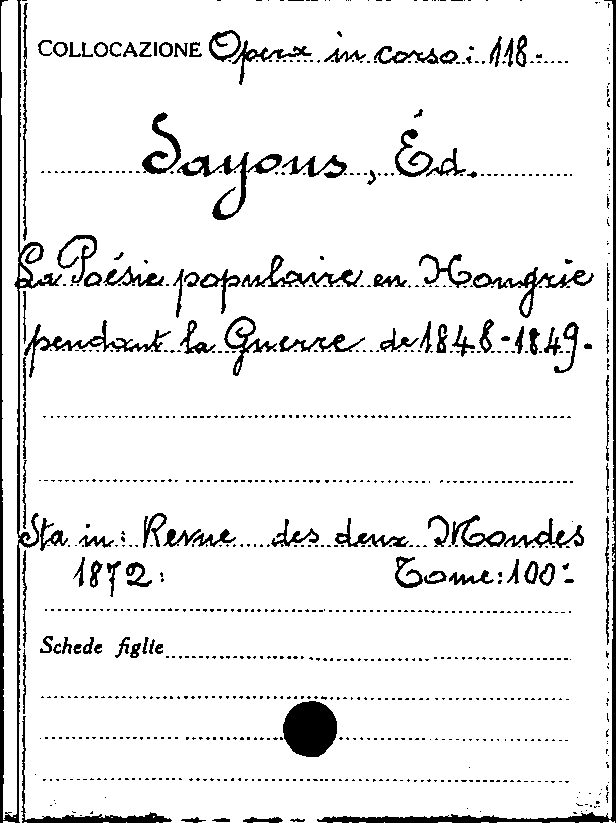 COLLOCAZIONE Opera in corso: 118.
Sayous, Éd.
La Poésie populaire en Hongrie
pendant la Guerre de 1848-1849.
Sta in: Revue des deux Mondes
1872: Tome: 100º
Schede figlie